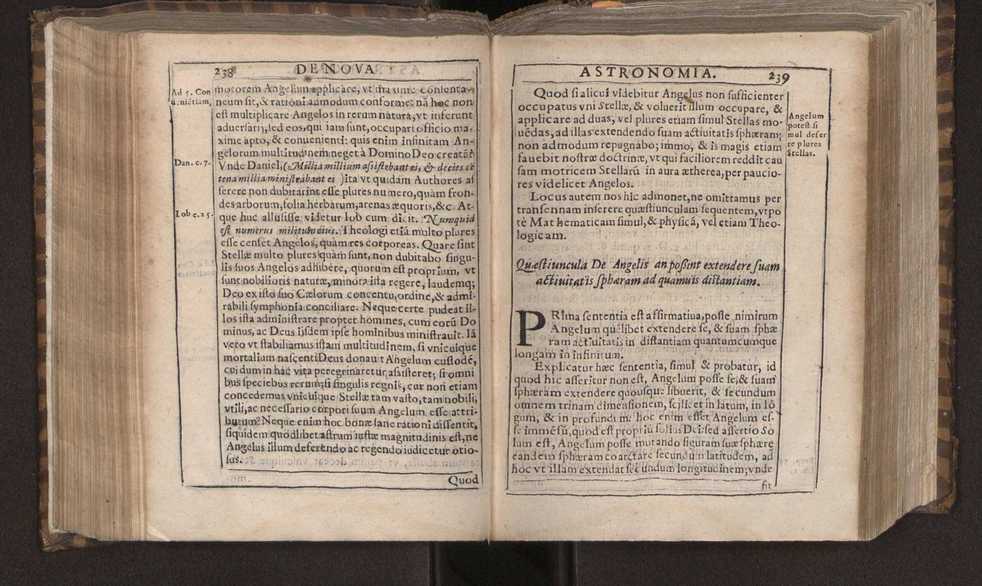 238 DE NOVA
Ad 5. Con
motorem Angelum applicare, vt ista sint contenta
neum sit, & rationi admodum conforme: nā hoc non
est multiplicare Angelos in rerum natura, vt inferunt
aduersarij, sed eos, qui iam sunt, occupari officio ma-
xime apto, & conuenienti: quis enim infinitam An-
gelorum multitudinem neget à Domino Deo creatā?
Dan. c. 7.
Vnde Daniel, (Millia millium assistebant ei, & decies cē
tena millia ministrabant ei) ita vt quidam Authores as
serere non dubitarint esse plures numero, quàm fron-
des arborum, folia herbarum, arenas æquoris, &c. At-
Iob c. 25.
que huc allusisse videtur Iob cum dicit. Numquid
est numerus militum eius. Theologi etiā multo plures
esse censet Angelos, quàm res corporeas. Quare sint
Stellæ multo plures quàm sunt, non dubitabo singu-
lis suos Angelos adhibere, quorum est proprium, vt
sunt nobilioris naturæ, minora ista regere, laudemq;
Deo ex isto suo Cælorum concentu, ordine, & admi-
rabili symphonia conciliare. Neque certe pudeat il-
los ista administrare propter homines, cum eorū Do
minus, ac Deus ijsdem ipse hominibus ministrauit. Iā
vero vt stabiliamus istam multitudinem, si vnicuique
mortalium nascenti Deus donauit Angelum custodē,
cui dum in hac vita peregrinaretur, assisteret; si omni
bus speciebus rerum, si singulis regnis, cur non etiam
concedemus vnicuique Stellæ tam vasto, tam nobili,
vtili, ac necessario corpori suum Angelum esse attri-
butum? Neque enim hoc bonæ sane rationi dissentit,
siquidem quodlibet astrum iustæ magnitudinis est, ne
Angelus illum deferendo ac regendo iudicetur otio-
sus.
Quod
ASTRONOMIA. 239
Quod si alicui videbitur Angelus non sufficienter
occupatus vni Stellæ, & voluerit illum occupare, &
applicare ad duas, vel plures etiam simul Stellas mo-
uēdas, ad illas extendendo suam actiuitatis sphæram;
non admodum repugnabo; immo, & is magis etiam
fauebit nostræ doctrinæ, vt qui faciliorem reddit cau
sam motricem Stellarū in aura ætherea, per paucio-
res videlicet Angelos.
Angelum
potest si
mul defer
re plures
Stellas.
Locus autem nos hic admonet, ne omittamus per
transennam inserere quæstiunculam sequentem, vtpo
tè Mathematicam simul, & physicā, vel etiam Theo-
logicam.
Quæstiuncula De Angelis an possint extendere suam
actiuitatis sphæram ad quamuis distantiam.
PRIma sententia est affirmatiua, posse nimirum
Angelum quēlibet extendere se, & suam sphæ
ram actiuitatis in distantiam quantumcumque
longam in infinitum.
Explicatur hæc sententia, simul & probatur, id
quod hic asseritur non est, Angelum posse se, & suam
sphæram extendere quousque libuerit, & secundum
omnem trinam dimensionem, scilicet in latum, in lō
gum, & in profundum: hoc enim esset Angelum es-
se immēsū, quod est propriū solius Dei: sed assertio So
lum est, Angelum posse mutando figuram suæ sphæræ
eandem sphæram coarctare secundum latitudem, ad
hoc vt illam extendat secundum longitudinem; vnde
fit